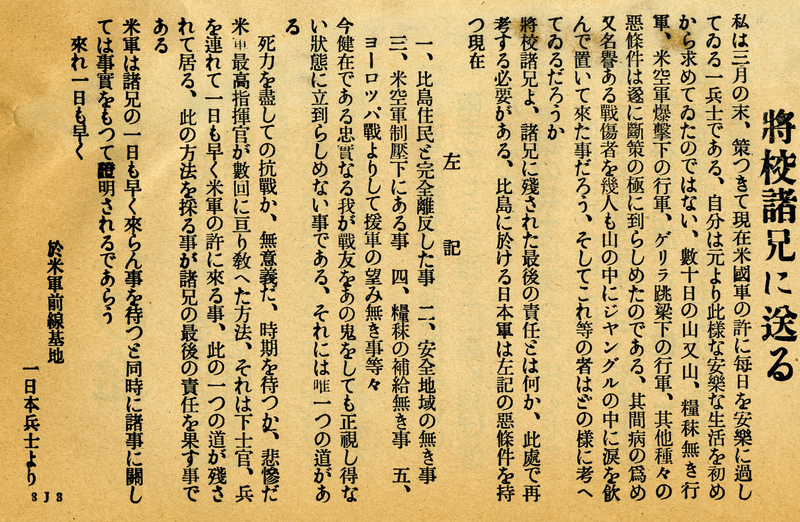 將校諸兄に送る
私は三月の末、策つきて現在米國軍の許に每日を安樂に過し
てゐる一兵士である、自分は元より此樣な安樂な生活を初め
から求めてゐたのではない、數十日の山又山、糧秣無き行
軍、米空軍爆擊下の行軍、ゲリラ跳梁下の行軍、其他種々の
惡條件は遂に斷策の極に到らしめたのである、其間病の爲め
又名譽ある戰傷者を幾人も山の中にジヤングルの中に淚を飮
んで置いて來た事だろう、そしてこれ等の者はどの樣に考へ
てゐるだろうか
將校諸兄よ、諸兄に殘された最後の責任とは何か、此處で再
考する必要がある、比島に於ける日本軍は左記の惡條件を持
つ現在
左記
一、比島住民と完全離反した事 二、安全地域の無き事
三、米空軍制壓下にある事 四、糧秣の補給無き事 五、
ヨーロッパ戰よりして援軍の望み無き事等々
今健在である忠實なる我が戰友をあの鬼をしても正視し得な
い狀態に立到らしめない事である、それには唯一つの道があ
る
死力を盡しての抗戰か、無意義だ、時期を待つか、悲慘だ
米軍最高指揮官が數回に亘り敎へた方法、それは下士官、兵
を連れて一日も早く米軍の許に來る事、此の一つの道が殘さ
れて居る、此の方法を採る事が諸兄の最後の責任を果す事で
ある
米軍は諸兄の一日も早く來らん事を待つと同時に諸事に關し
ては事實をもつて證明されるであらう
來れ一日も早く
於米軍前線基地
一日本兵士より
8J8